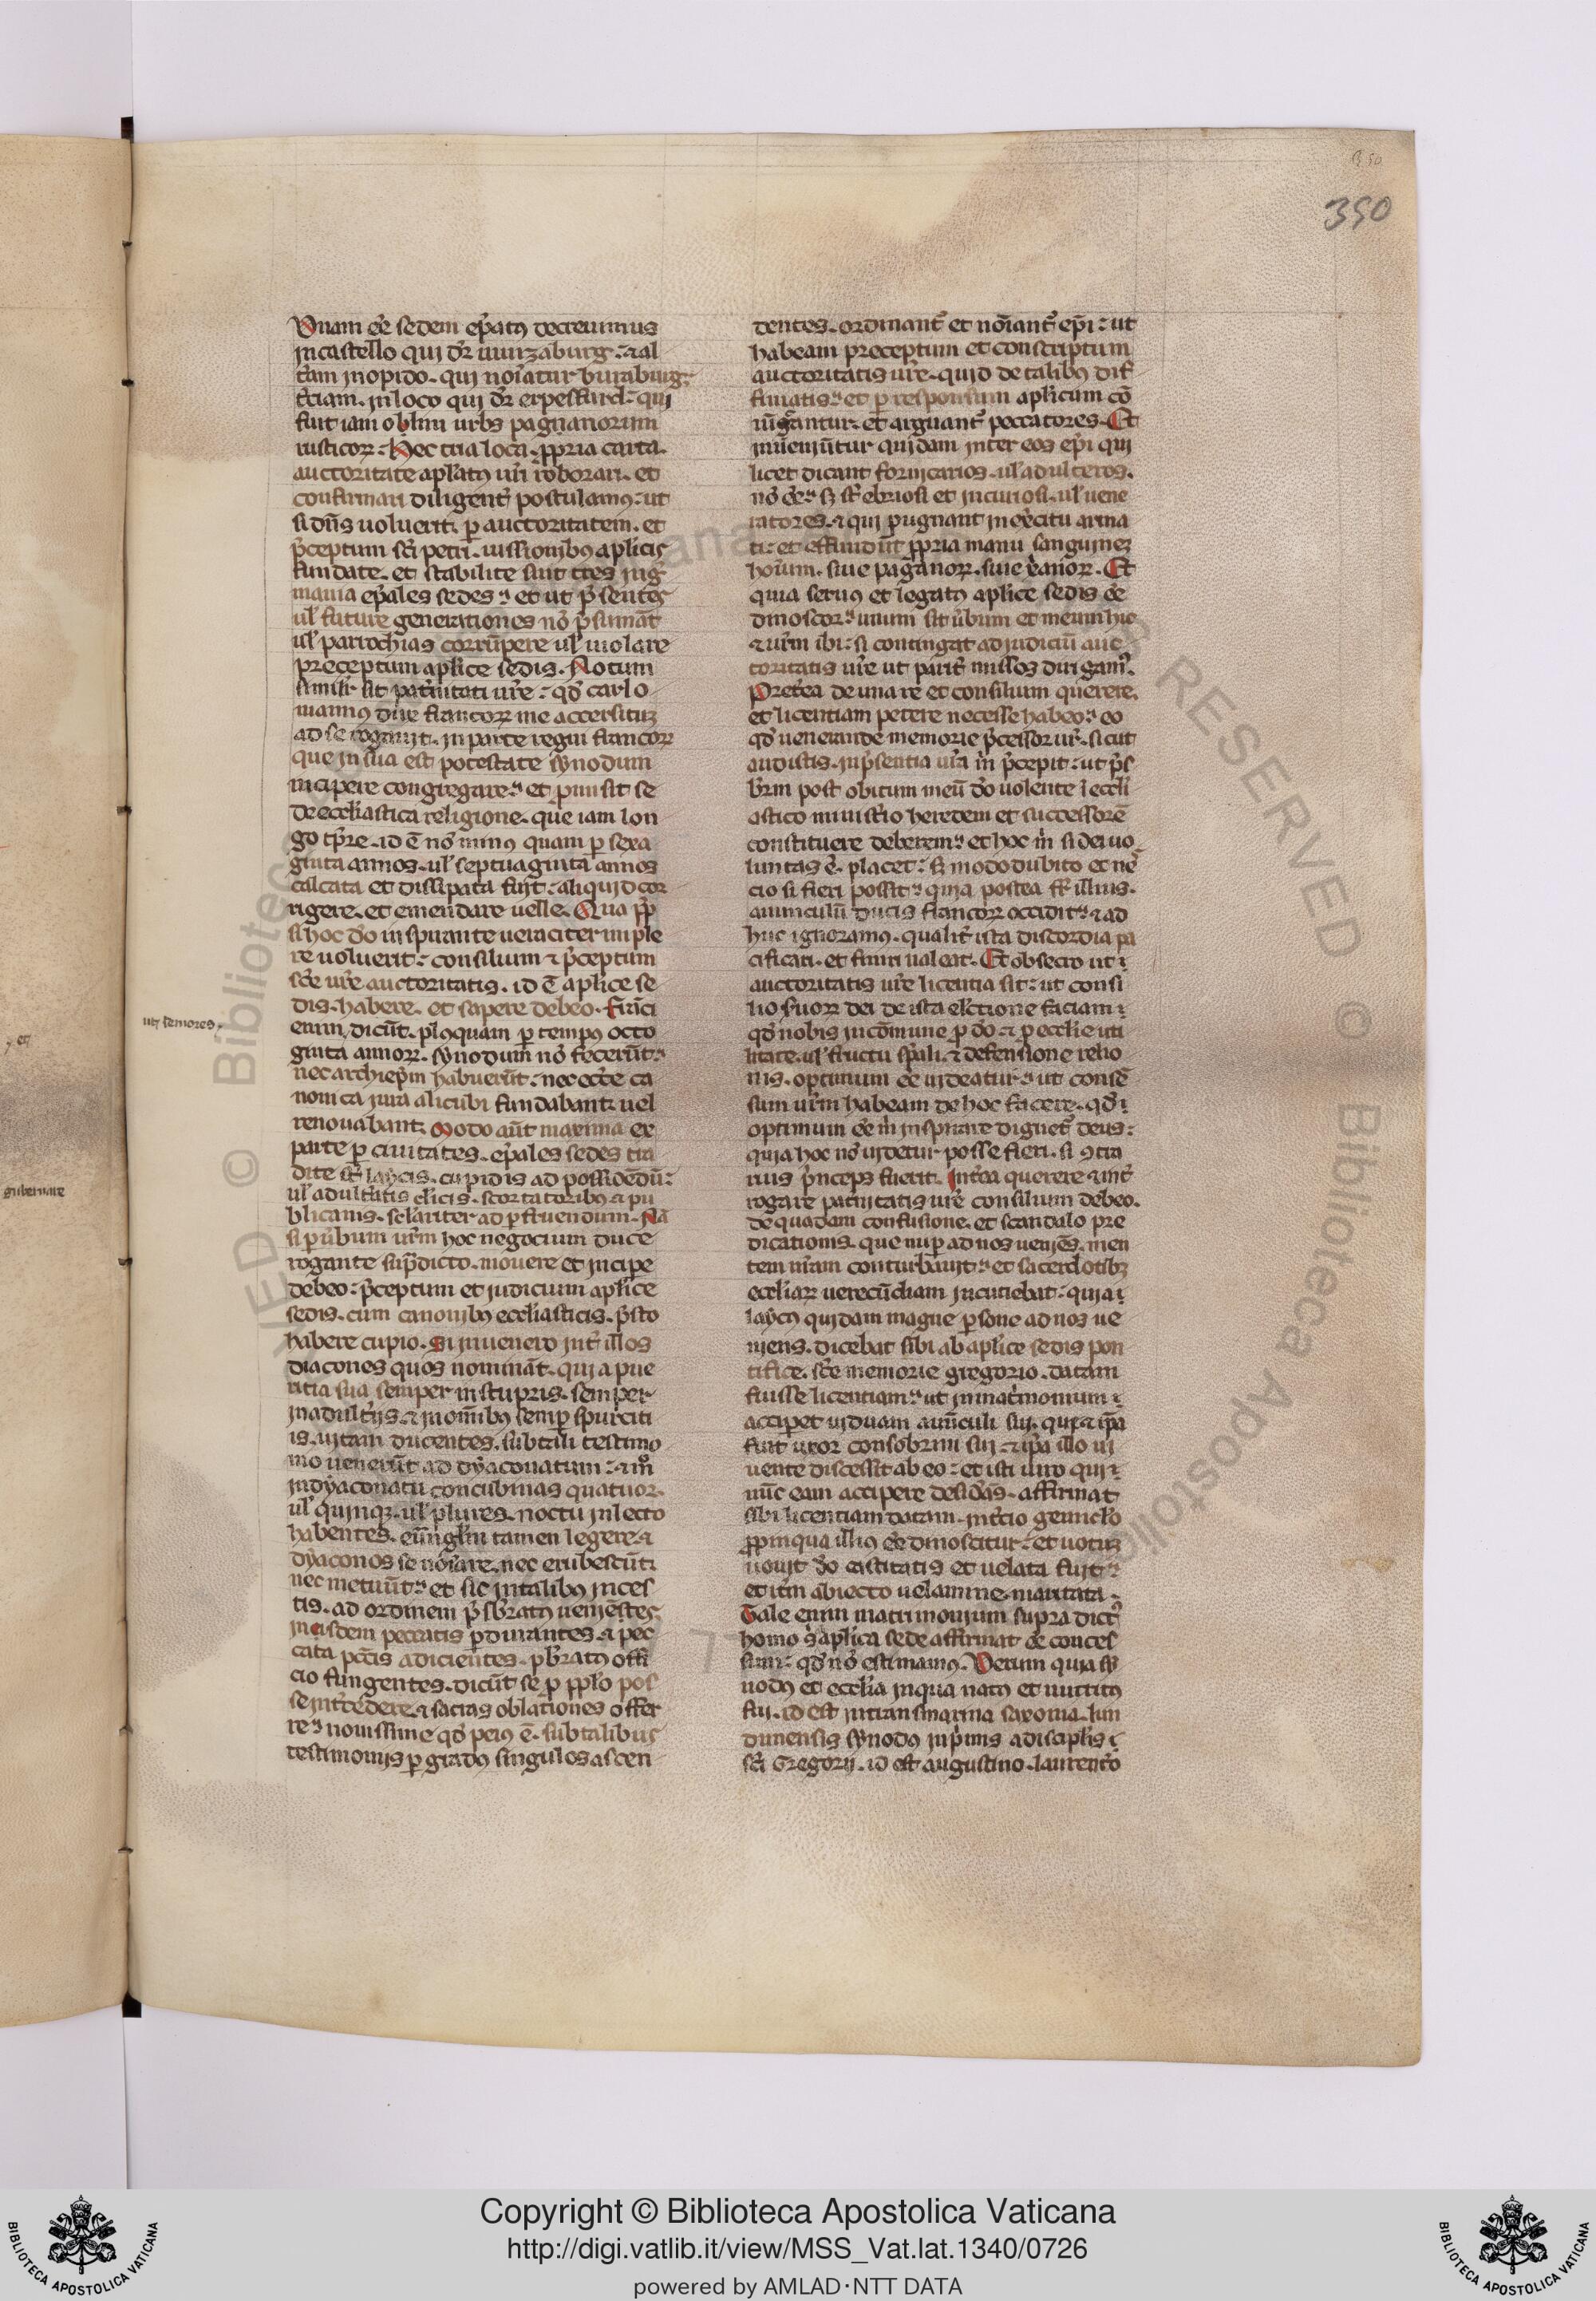 350
Vnam eē sedem ep̄atꝰ decreuimus
in castello qui dr̄ uuirzaburg. ⁊ al
t̄am in opido. qui noīatur buraburg.
t̄ciam. in loco qui dr̄ erpesfurd. qui
fuit iam olim urbs paganorum
rusticoꝝ. Hec tria loca ꝓpria carta.
auctoritate apl̄atꝰ ur̄i roborari. et
confirmari diligent̄ postulamꝰ. ut
si dn̄s uoluerit. ꝑ auctoritatem. et
p̄ceptum sc̄i petri. iussionibꝰ aplicis
fundate. et stabilite sint tres in ḡ
mania ep̄ales sedes. et ut p̄sentes
ul̓ future generationes nō p̄sumāt
ul̓ parrochias corrūpere ul̓ uiolare
preceptum aplice sedis. Notum
simil̓r sit pat̄nitati ur̄e. qd̓ carlo
mannꝰ dux francoꝝ me accersituꝫ
ad se rogauit. in parte regni francoꝝ
que in sua est potestate synodum
incipere congregare. et ꝓmisit se
de eccl̓iastica religione. que iam lon
go tp̄re. id ē nō minus quam ꝑ sexa
ginta annos. ul̓ septuaginta annos
calcata et dissipata fuit. aliquid cor
rigere. et emendare uelle. Qua ꝓp̄
si hoc d̓o inspirante ueraciter imple
re uoluerit. consilium ⁊ p̄ceptum
sc̄e ur̄e auctoritatis. id ē aplice se
dis. habere. et sapere debeo. Frāci
enim dicūt. plꝰquam ꝑ tempꝰ octo
ginta annoꝝ. synodum nō fecerūt.
nec archiep̄m habuerūt. nec eccl̓e ca
nonica iura alicubi fundabant uel
renouabant. Modo aūt maxima ex
parte ꝑ ciuitates. ep̄ales sedes tra
dite st̄ laycis. cupidis ad possidēdū.
ul̓ adult̄atis cl̓icis. scortatoribꝰ ⁊ pu
blicanis. scl̓ariter ad ꝑfruendum. Nā
si ꝑ ūbum ur̄m hoc negocium duce
rogante sup̄dicto. mouere et incipe
debeo. p̄ceptum et iudicium aplice
sedis. cum canonibꝰ eccl̓iasticis. p̄sto
habere cupio. Si inuenero int̄ illos
diaconos quos nomināt. qui a pue
ritia sua semper in stupris. semper
in adult̄ijs. ⁊ in om̄ibꝰ semꝑ spurciti
is. uitam ducentes. sub tali testimo
nio uenerūt ad dyaconatum. ⁊ m̊
in dyaconatu concubinas quatuor.
ul̓ quinqꝫ. ul̓ plures. noctu in lecto
habentes. euāgl̓m tamen legere ⁊
dyaconos se noīare. nec erubescūt.
nec metuūt. et sic in talibꝰ inces
tis. ad ordinem p̄sbratꝰ ueniētes.
in eisdem peccatis ꝑdurantes. ⁊ pec
cata pcc̄is adicientes. pbratꝰ offi
cio fungentes. dicūt se ꝓ ppl̓o pos
se int̄cedere. ⁊ sacras oblationes offer
re. nouissime qd̓ peiꝰ ē. sub talibus
testimonijs ꝑ gradꝰ singulos ascen
dentes. ordinant̄ et noīant̄ ep̄i. ut
habeam preceptum et conscriptum
auctoritatis ur̄e. quid de talibꝰ dif
finiatis. et ꝑ responsum aplicum cō
uīcantur. et arguant̄ peccatores. Et
inueniūtur quidam inter eos ep̄i qui
licet dicant fornicarios. ul̓ adulteros.
nō eē. s̄ st̄ ebriosi et incuriosi. ul̓ uena
tores. ⁊ qui pugnant in ex̄citu arma
ti. et effundūt ꝓpria manu sanguineꝫ
hoīum. siue paganoꝝ. siue xp̄anoꝝ. Et
quia seruꝰ et legatꝰ aplice sedis eē
dinoscor. unum sit ūbum et meum hic
⁊ ur̄m ibi. si contingat ad iudiciū auc
toritatis ur̄e ut parit̄ missos dirigamꝰ.
Pret̄ea de una re et consilium querere.
et licentiam petere necesse habeo. eo
qd̓ uenerande memorie p̄cessor ur̄. sicut
audistis. in p̄sentia ur̄a m̄ p̄cepit. ut p̄s
br̄m post obitum meū d̓o uolente ī eccl̓i
astico minist̄io heredem et successorē
constituere deberem. et hoc m̄ si dei uo
luntas ē. placet. s̄ modo dubito et ne
cio si fieri possit. quia postea fr̄ illius.
auunculū ducis francoꝝ occidit. ⁊ ad
huc ignoramꝰ. qualit̄ ista discordia pa
cificari. et finiri ualeat. Et obsecro ut
auctoritatis ur̄e licentia sit. ut consi
lio suoꝝ dei de ista el̓ctione faciam
qd̓ nobis in cōmune ꝓ d̓o ⁊ ꝓ eccl̓ie uti
litate. ul̓ fructu sp̄ali. ⁊ defensione relio
nis. optimum eē uideatur. ut consē
sum ur̄m habeam de hoc facere. qd̓
optimum eē m̄ inspirare dignet̄ deus.
quia hoc nō uidetur posse fieri. si ꝯtra
rius p̄nceps fuerit. Int̄ea querere ⁊ int̄
rogare pat̄nitatis ur̄e consilium debeo.
de quadam confusione. et scandalo pre
dicationis. que nuꝑ ad nos ueniēs. men
tem nr̄am conturbauit. et sacerdotibꝫ
eccl̓iaꝝ uerecūdiam incutiebat. quia
laycꝰ quidam magne ꝑsone ad nos ue
niens. dicebat sibi ab aplice sedis pon
tifice. sc̄e memorie gregorio. datam
fuisse licentiam. ut in mat̄imonium
accipet uiduam auūculi sui. que ⁊ ip̄a
fuit uxor consobrini sui. ⁊ ip̄a illo ui
uente discessit ab eo. et isti uiro qui
nūc eam accipere desid̄as. affirmat
sibi licentiam datam. int̄cio genicl̓o
ꝓpinqua illiꝰ eē dinoscitur. et uotuꝫ
uouit d̓o castitatis et uelata fuit
et it̄m abiecto uelamine. maritata.
Tale enim matrimonium supra dictꝰ
homo ab aplica sede affirmat eē conces
sum. qd̓ nō estimamꝰ. Verum quia sy
nodꝰ et eccl̓ia in qua natꝰ et nutritꝰ
fui. id est in transmarina saxonia. lun
dunensis synodꝰ in p̄mis a discipl̓is
sc̄i Gregorij. id est augustino. laurentio
uir̄ semores.
gubernare
Copyright © Biblioteca Apostolica Vaticana
http://digi.vatlib.it/view/MSS_Vat.lat.1340/0726
powered by AMLAD·NTT DATA
BIBLIOTECA APOSTOLICA VATICANA
BIBLIOTECA APOSTOLICA VATICANA